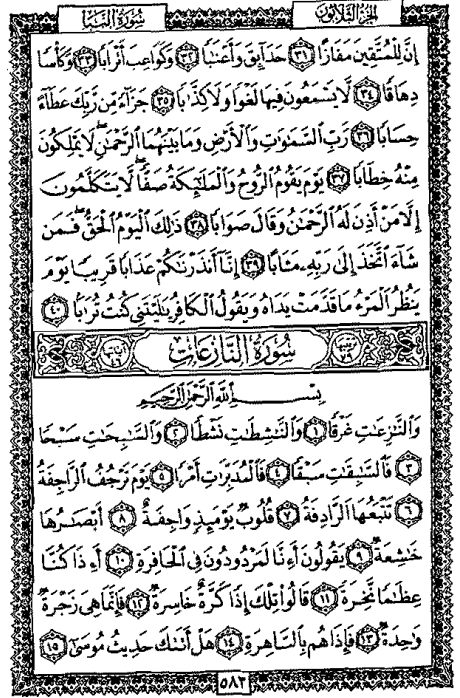 سُورَةُ النَّبَإِ الجُزْءُ الثَّلَاثُونَ
إِنَّ لِلْمُتَّقِينَ مَفَازًا ٣١ حَدَآئِقَ وَأَعْنَٰبًا ٣٢ وَكَوَاعِبَ أَتْرَابًا ٣٣ وَكَأْسًا
دِهَاقًا ٣٤ لَّا يَسْمَعُونَ فِيهَا لَغْوًا وَلَا كِذَّٰبًا ٣٥ جَزَآءً مِّن رَّبِّكَ عَطَآءً
حِسَابًا ٣٦ رَّبِّ السَّمَٰوَٰتِ وَالْأَرْضِ وَمَا بَيْنَهُمَا الرَّحْمَٰنِ ۖ لَا يَمْلِكُونَ
مِنْهُ خِطَابًا ٣٧ يَوْمَ يَقُومُ الرُّوحُ وَالْمَلَٰٓئِكَةُ صَفًّا ۖ لَّا يَتَكَلَّمُونَ
إِلَّا مَنْ أَذِنَ لَهُ الرَّحْمَٰنُ وَقَالَ صَوَابًا ٣٨ ذَٰلِكَ الْيَوْمُ الْحَقُّ ۖ فَمَن
شَآءَ اتَّخَذَ إِلَىٰ رَبِّهِۦ مَـَٔابًا ٣٩ إِنَّآ أَنذَرْنَٰكُمْ عَذَابًا قَرِيبًا يَوْمَ
يَنظُرُ الْمَرْءُ مَا قَدَّمَتْ يَدَاهُ وَيَقُولُ الْكَافِرُ يَٰلَيْتَنِى كُنتُ تُرَٰبًۢا ٤٠
سُورَةُ النَّازِعَاتِ
بِسْمِ اللَّهِ الرَّحْمَٰنِ الرَّحِيمِ
وَالنَّٰزِعَٰتِ غَرْقًا ١ وَالنَّٰشِطَٰتِ نَشْطًا ٢ وَالسَّٰبِحَٰتِ سَبْحًا
٣ فَالسَّٰبِقَٰتِ سَبْقًا ٤ فَالْمُدَبِّرَٰتِ أَمْرًا ٥ يَوْمَ تَرْجُفُ الرَّاجِفَةُ
٦ تَتْبَعُهَا الرَّادِفَةُ ٧ قُلُوبٌ يَوْمَئِذٍ وَاجِفَةٌ ٨ أَبْصَٰرُهَا
خَٰشِعَةٌ ٩ يَقُولُونَ أَءِنَّا لَمَرْدُودُونَ فِى الْحَافِرَةِ ١٠ أَءِذَا كُنَّا
عِظَٰمًا نَّخِرَةً ١١ قَالُوا۟ تِلْكَ إِذًا كَرَّةٌ خَاسِرَةٌ ١٢ فَإِنَّمَا هِىَ زَجْرَةٌ
وَٰحِدَةٌ ١٣ فَإِذَا هُم بِالسَّاهِرَةِ ١٤ هَلْ أَتَىٰكَ حَدِيثُ مُوسَىٰٓ ١٥
٥٨٣